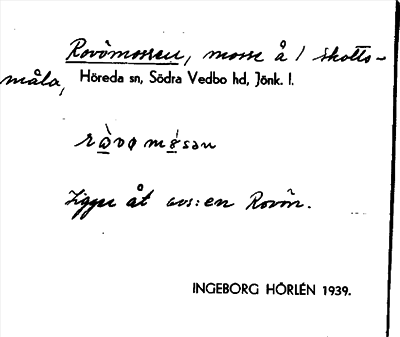 Rovömossen, mosse å 1 Skotts-
måla, Höreda sn, Södra Vedbo hd, Jönk. l.
Ligger åt avs: en Rovön.
INGEBORG HÖRLÉN 1939.